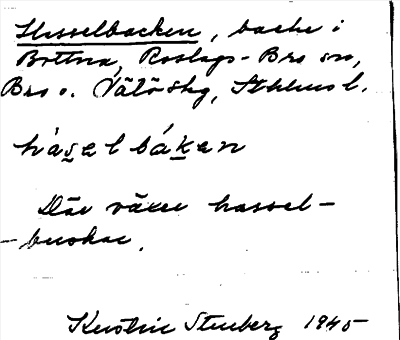 Hesselbacken, backe i
Bottna, Roslags-Bro sn,
Bro o. Vätö skg, Sthlms l.
hásel báken
Där växer hassel-
-buskar.
Kerstin Stenberg 1945